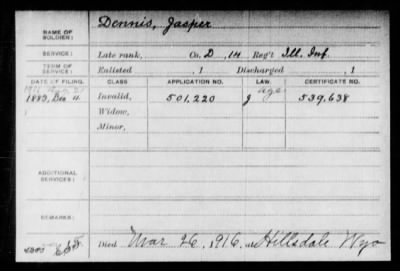 NAME OF SOLDIER: Dennis, Jasper
SERVICE: Late rank, Co. D, 14 Reg't Ill. Inf.
TERM OF SERVICE: Enlisted , 1 Discharged , 1
DATE OF FILING. CLASS. APPLICATION NO. LAW. CERTIFICATE NO.
age
1883, Dec 4 Invalid, 501,220 J 539,638
Widow,
Minor,
ADDITIONAL SERVICES:
REMARKS:
Died Mar 26, 1916, at Hillsdale Wyo